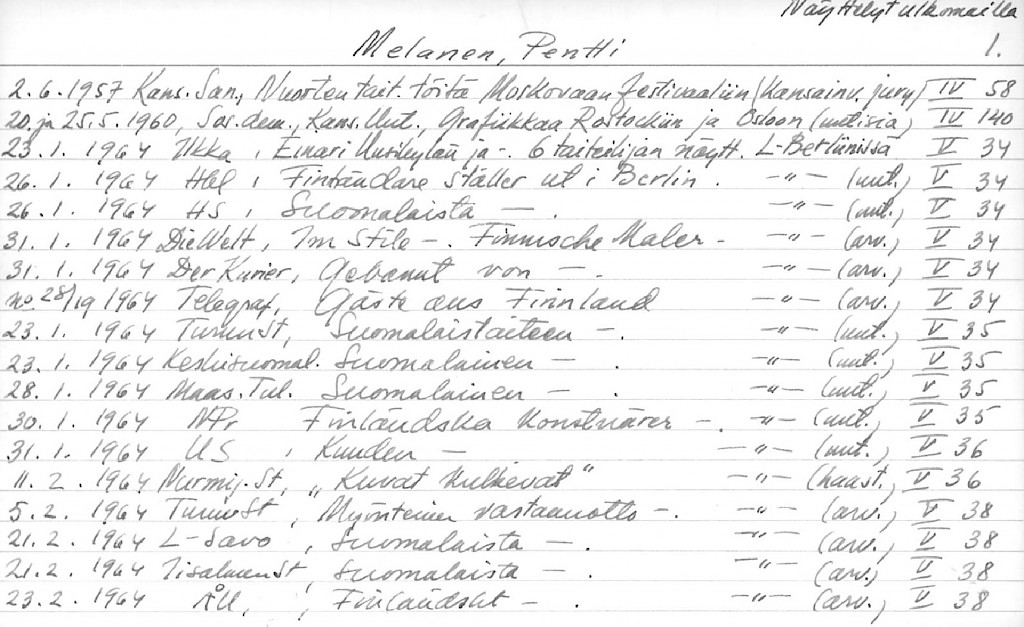 Näyttelyt ulkomailla
Melanen, Pentti 1.
2.6.1957 Kans. San., Nuorten tait. töitä Moskovaan festivaaliin (Kansainv. jury) IV 58
20. ja 25.5.1960, Sos.dem., Kans. Uut., Grafiikkaa Rostockiin ja Osloon (uutisia) IV 140
23.1.1964 Ilkka, Einari Uusikylän ja -. 6 taiteilijan näytt. L-Berliinissä V 34
26.1.1964 Hbl, Finländare ställer ut i Berlin. -"- (uut.) V 34
26.1.1964 HS, Suomalaista -. -"- (uut.) V 34
31.1.1964 Die Welt, Im Stile -. Finnische Maler - -"- (arv.) V 34
31.1.1964 Der Kurier, Gebannt von -. -"- (arv.) V 34
no 28/19 1964 Telegraf, Gäste aus Finnland -"- (arv.) V 34
23.1.1964 TurunSt, Suomalaistaiteen -. -"- (uut.) V 35
23.1.1964 Keskisuomal. Suomalainen -. -"- (uut.) V 35
28.1.1964 Maas. Tul. Suomalainen -. -"- (uut.) V 35
30.1.1964 NPr Finländska konstnärer -. -"- (uut.) V 35
31.1.1964 US, Kuuden - -"- (uut.) V 36
11.2.1964 Nurmij. St, "Kuvat kulkevat" -"- (haast.) V 36
5.2.1964 TurunSt, Myönteinen vastaanotto -. -"- (arv.) V 38
21.2.1964 L-Savo, Suomalaista -. -"- (arv.) V 38
21.2.1964 IisalmenSt, Suomalaista -. -"- (arv.) V 38
23.2.1964 ÅU, Finländskt -. -"- (arv.) V 38